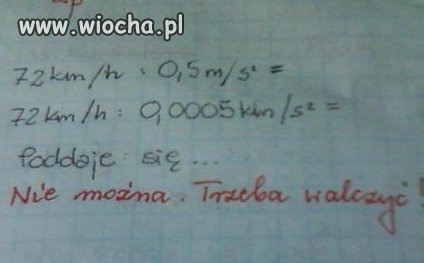 www.wiocha.pl
72 km/h : 0,5 m/s² =
72 km/h : 0,0005 km/s² =
Poddaje się ...
Nie można. Trzeba walczyć!